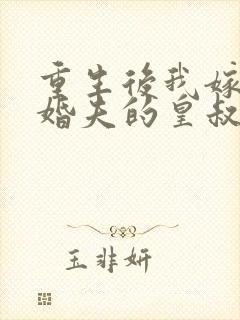 重生後我嫁
婚夫的皇叔
玉非妍